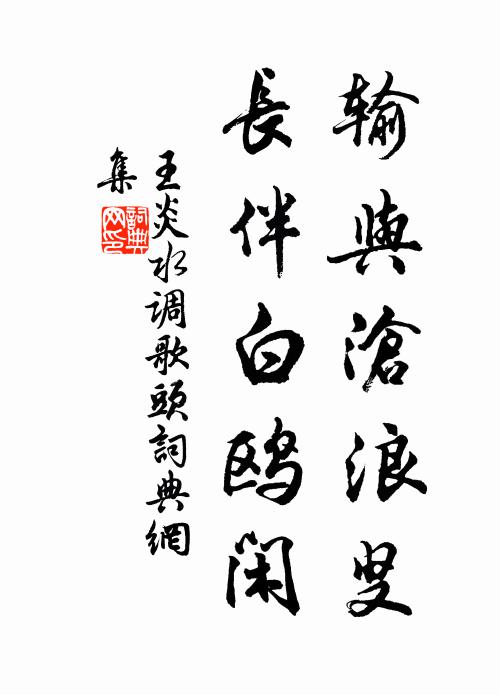 输與滄浪叟
長伴白鸥閑
王炎水调歌頭詞典網
集
詞典网印